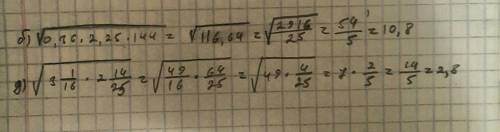 б) √0,36·2,25·144 = √116,64 = √2916/25 = 54/5 = 10,8
д) √3 1/16 · 2 14/25 = √49/16 · 64/25 = √49 · 4/25 = 7 · 2/5 = 14/5 = 2,8